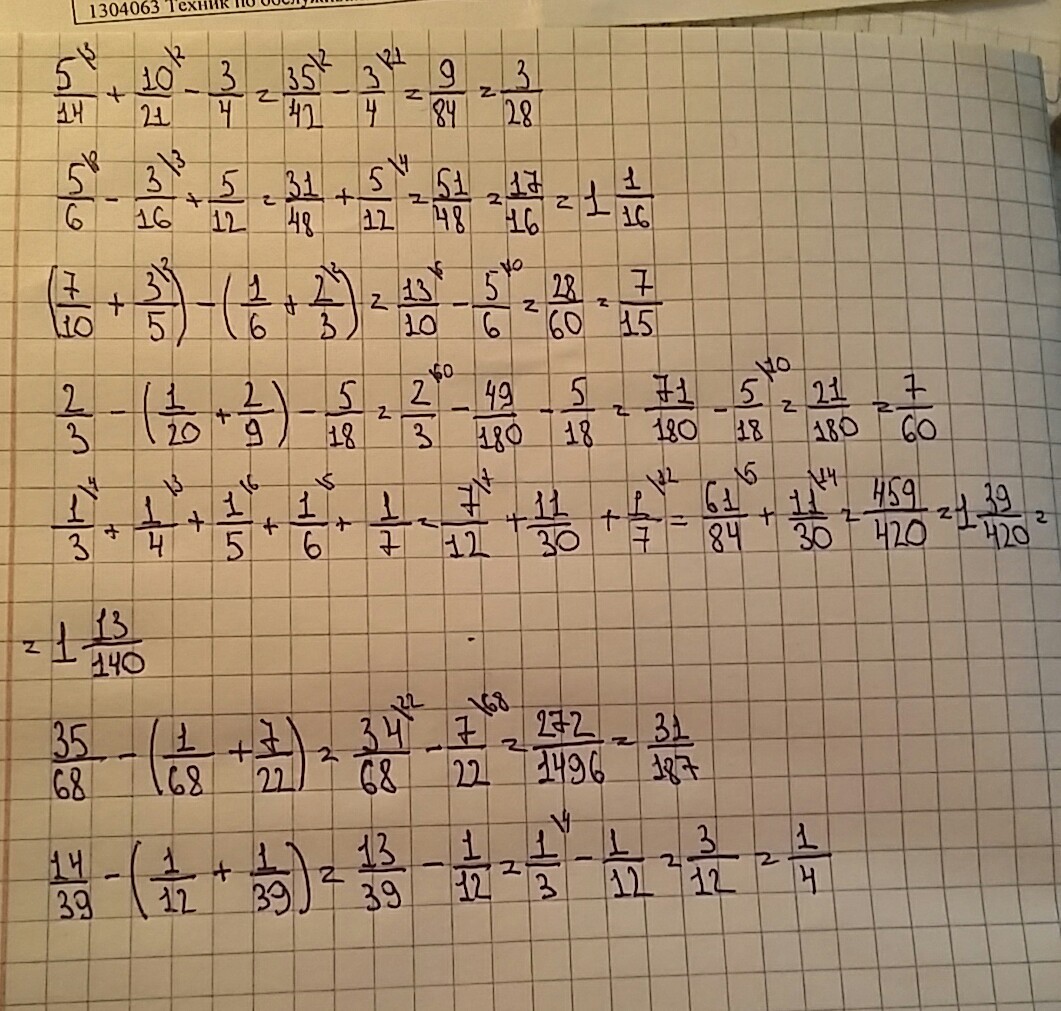 1304063 Техник по
5/14 \3 + 10/21 \2 - 3/4 = 35/42 \2 - 3/4 \21 = 9/84 = 3/28
5/6 \8 - 3/16 \3 + 5/12 = 31/48 + 5/12 \4 = 51/48 = 17/16 = 1 1/16
(7/10 + 3/5 \2) - (1/6 + 2/3 \2) = 13/10 \6 - 5/6 \10 = 28/60 = 7/15
2/3 - (1/20 + 2/9) - 5/18 = 2/3 \60 - 49/180 - 5/18 = 71/180 - 5/18 \10 = 21/180 = 7/60
1/3 \4 + 1/4 \3 + 1/5 \6 + 1/6 \5 + 1/7 = 7/12 \7 + 11/30 + 1/7 \12 = 61/84 \5 + 11/30 \14 = 459/420 = 1 39/420 =
= 1 13/140
35/68 - (1/68 + 7/22) = 34/68 \22 - 7/22 \68 = 272/1496 = 31/187
14/39 - (1/12 + 1/39) = 13/39 - 1/12 = 1/3 \4 - 1/12 = 3/12 = 1/4